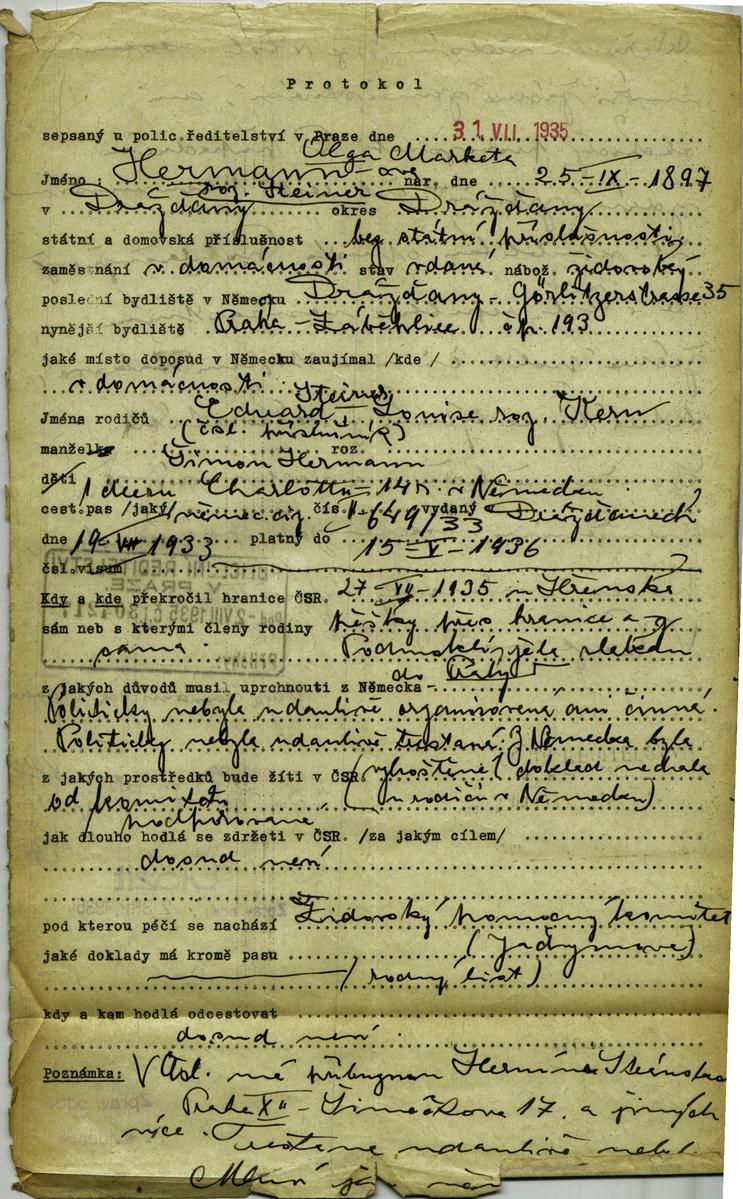 Protokol
sepsaný u polic.ředitelství v Praze dne 31 VII. 1935
Olga Marketa
Jméno: Hermann-ová nar. dne 25-IX-1897
roz. Steiner
v Drážďany okres Drážďany
státní a domovská příslušnost bez státní příslušnosti
zaměstnání v domácnosti stav vdaná nábož. židovský
poslední bydliště v Německu Drážďany - Görlitzerstrasse 35
nynější bydliště Praha - Záběhlice čp. 193
jaké místo doposud v Německu zaujímal /kde/
v domácnosti
Steiner
Jména rodičů Eduard - Louise roz. Kern
(čsl. příslušník)
manžel roz.
Šimon Hermann
děti 1 dceru Charlotta - 14 r. v Německu
cest.pas /jaký/ německý čís. 1-649/33 vydaný Drážďanech
dne 19 VII 1933 platný do 15-V-1936
čsl.visum
Kdy a kde překročil hranice ČSR. 27 VII-1935 u Hřenska
sám neb s kterými členy rodiny pěšky přes hranice a z
sama. Podmokel jela vlakem
do Prahy
z jakých důvodů musil uprchnouti z Německa -
Politicky nebyla udánlivě organisována ani činná.
Politicky nebyla udánlivě trestaná. Z Německa byla
z jakých prostředků bude žíti v ČSR. vyhoštěna (doklad nechala
od komitétu (u rodičů v Německu)
podporována
jak dlouho hodlá se zdržeti v ČSR. /za jakým cílem/
dosud neví
pod kterou péčí se nachází Židovský pomocný komitét
jaké doklady má kromě pasu
(rodný list)
kdy a kam hodlá odcestovat
dosud neví.
Poznámka: V čsl. má příbuznou
Praha XII - Šimáčkova 17. a jiných
více. Trestána udánlivě nebyl.